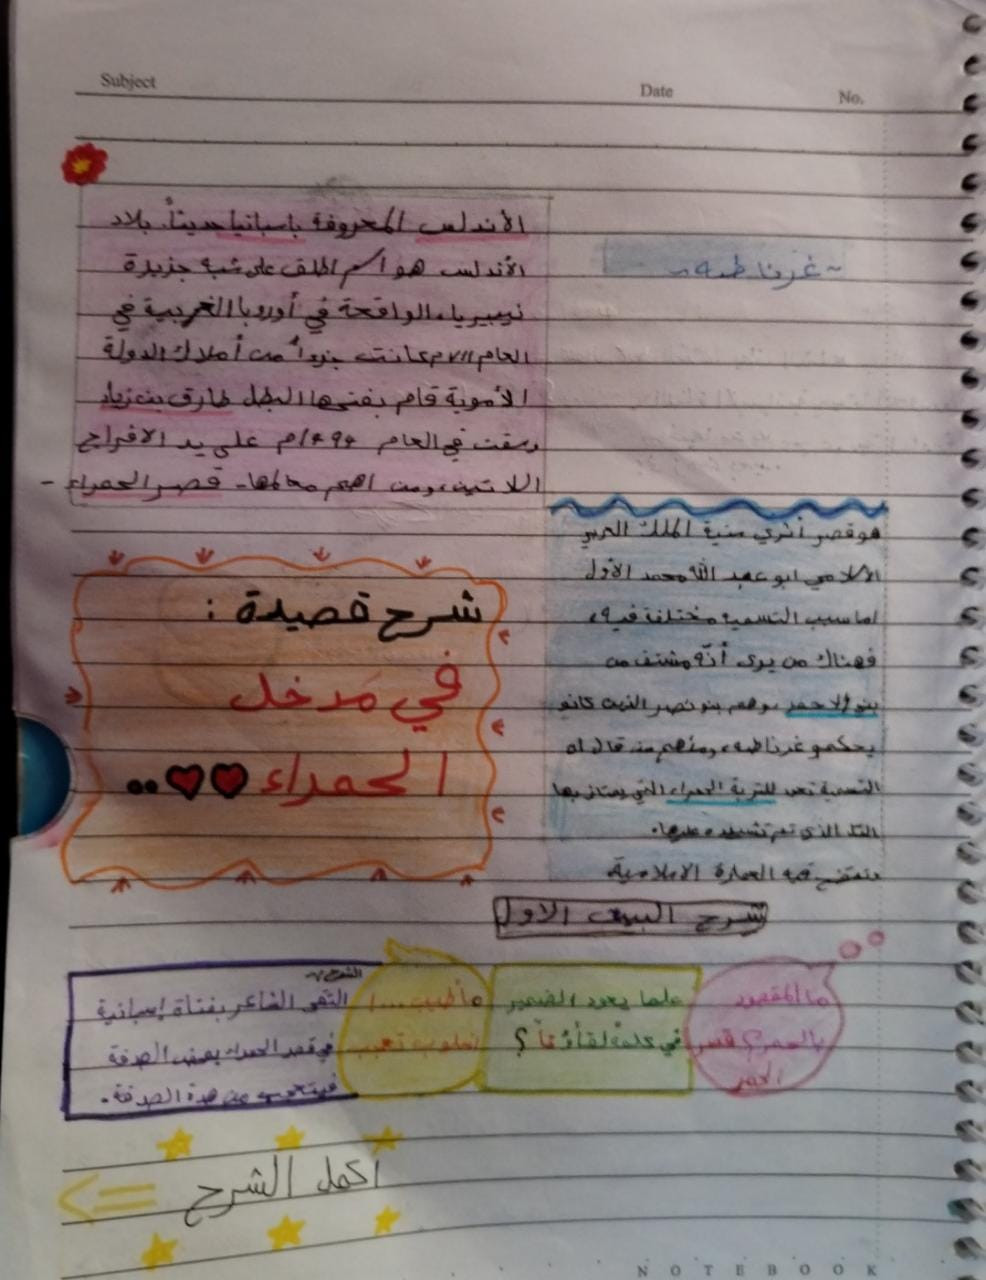 Subject
Date
No.
~غرناطه~
الأندلس المعروفة باسبانيا حديثاً. بلاد
الأندلس هو اسم اطلق على شبه جزيرة
يبيريا، الواقعة في أوروبا الغربية في
العام 711م كانت جزءاً من أملاك الدولة
الأموية قام بفتحها البطل طارق بن زياد
وسقت في العام 1492م على يد الافراج
اللاتين، ومن اهم معالمها- قصر الحمراء-
هو قصر أثري بنية الملك العربي
الاسلامي ابو عبد الله محمد الأول
اما سبب التسميه مختلفة فيه،
فهناك من يرى أنّه مشتف من
بنو الاحمر، وهم بنو نصر الذين كانو
يحكمو غرناطه، ومنهم من قال ان
التسمية تعود للتربة الحمراء التي يمتاز بها
التل الذي تم تشييده عليها.
فيه العمارة الاسلامية
شرح قصيدة :
في مَدخل
الحمراء ..
شرح البيت الاول
ما المقصود
بالحمر؟ قصر
الحمر
علما يعود الضمير
في كلمة لقاؤنا؟
ما أطيب...!
اسلوب تعجب
الشرح~
التقى الشاعر بفتاة إسبانية
في قصر الحمراء بمحض الصدفة
فيتعجب من هذة الصدفة.
اكمل الشرح =>
NOTEBOOK